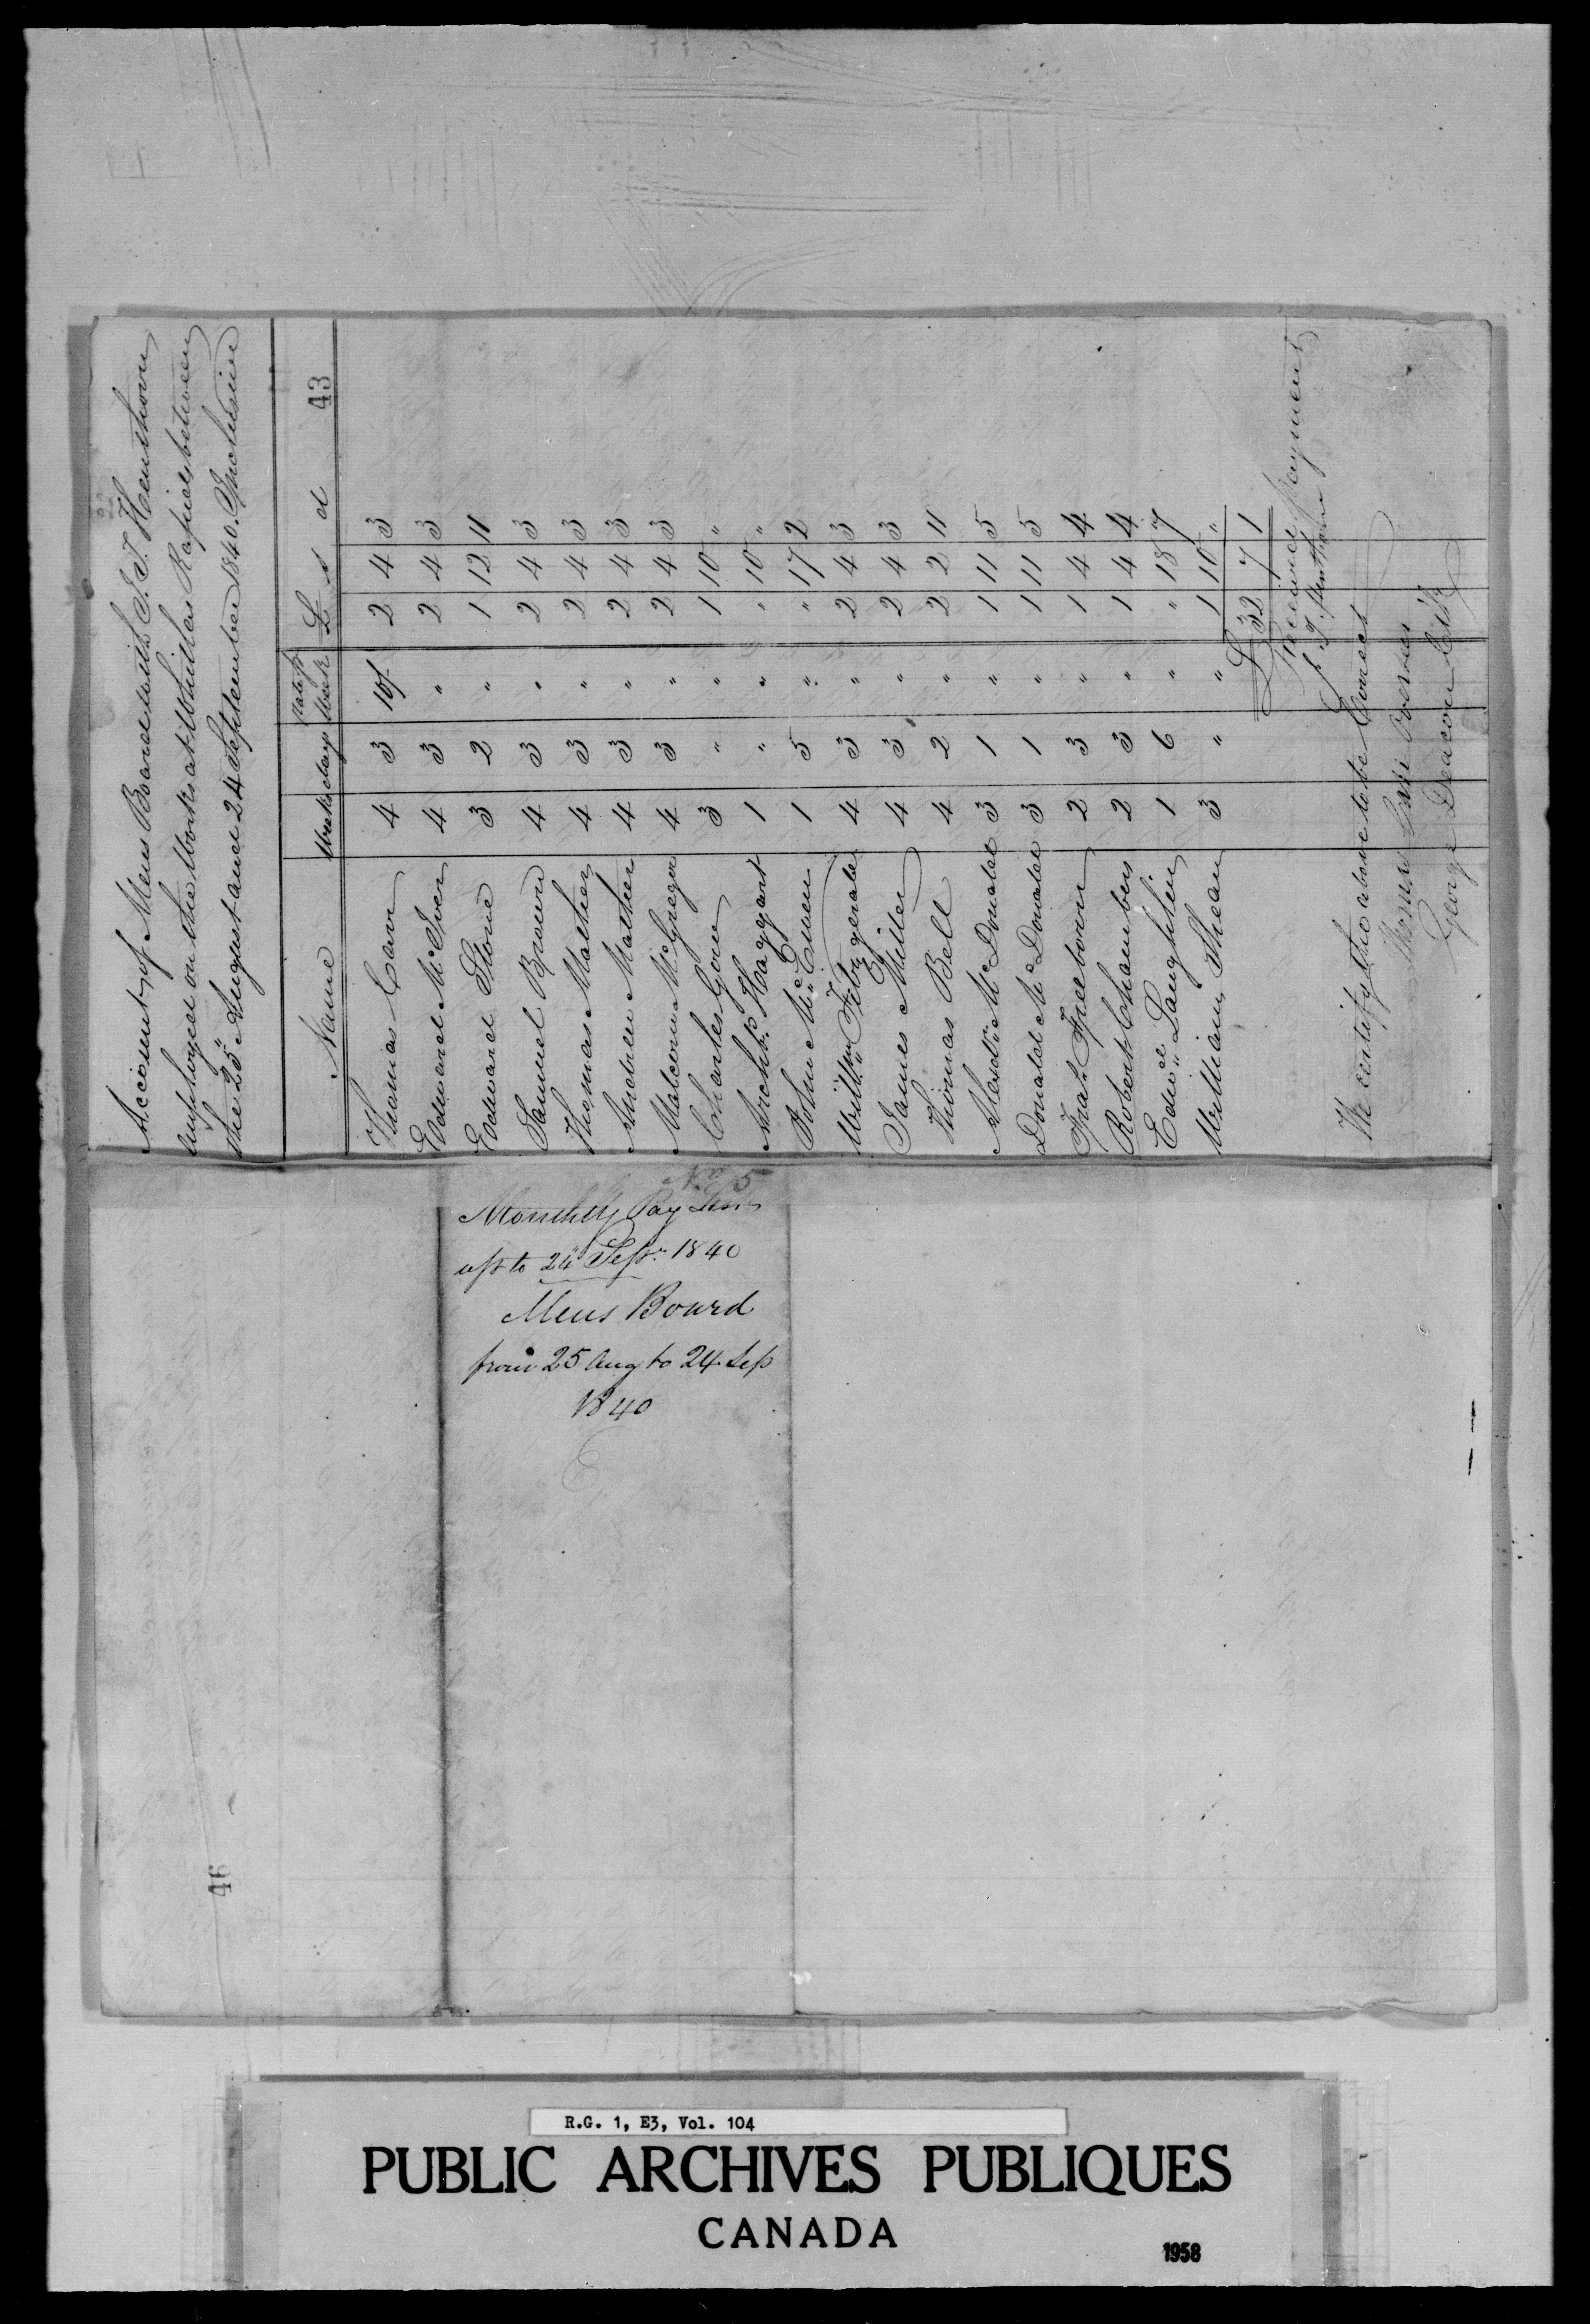 Account of Mens Board with J. T. Henthorn
employed on the Works at Whitlas Rapids between
the 25" August and 24 September 1840. Inclusive
43
Name Weeks days Rate pr Week £ s d
Thomas Carr 4 3 10/ 2 4 3
Edward McIver 4 3 " 2 4 3
Edward Stone 3 2 " 1 12 11
Samuel Brown 4 3 " 2 4 3
Thomas Mathew 4 3 " 2 4 3
Andrew Mathew 4 3 " 2 4 3
Malcom McGregor 4 3 " 2 4 3
Charles Gow 3 " " 1 10 "
Archd. Haggart 1 " " " 10 "
John McEwen 1 5 " " 17 2
Willm Fitzgerald 4 3 " 2 4 3
James Miller 4 3 " 2 4 3
Thomas Bell 4 2 " 2 2 11
Alexdr McDonald 3 1 " 1 11 5
Donald McDonald 3 1 " 1 11 5
Fras. Freeborn 2 3 " 1 4 4
Robert Chambers 2 3 " 1 4 4
Edwd Laughlin 1 6 " " 18 7
William Shean 3 " " 1 10 "
£ 32 7 1
Received Payment
J. T. Henthorn
We certify the above to be Correct
Overseer
George Deacon Clk
No 5
Monthly Pay List
up to 24 Sepr. 1840
Mens Board
from 25 Aug to 24 Sep
1840
46
R.G. 1, E3, Vol. 104
PUBLIC ARCHIVES PUBLIQUES
CANADA
1958